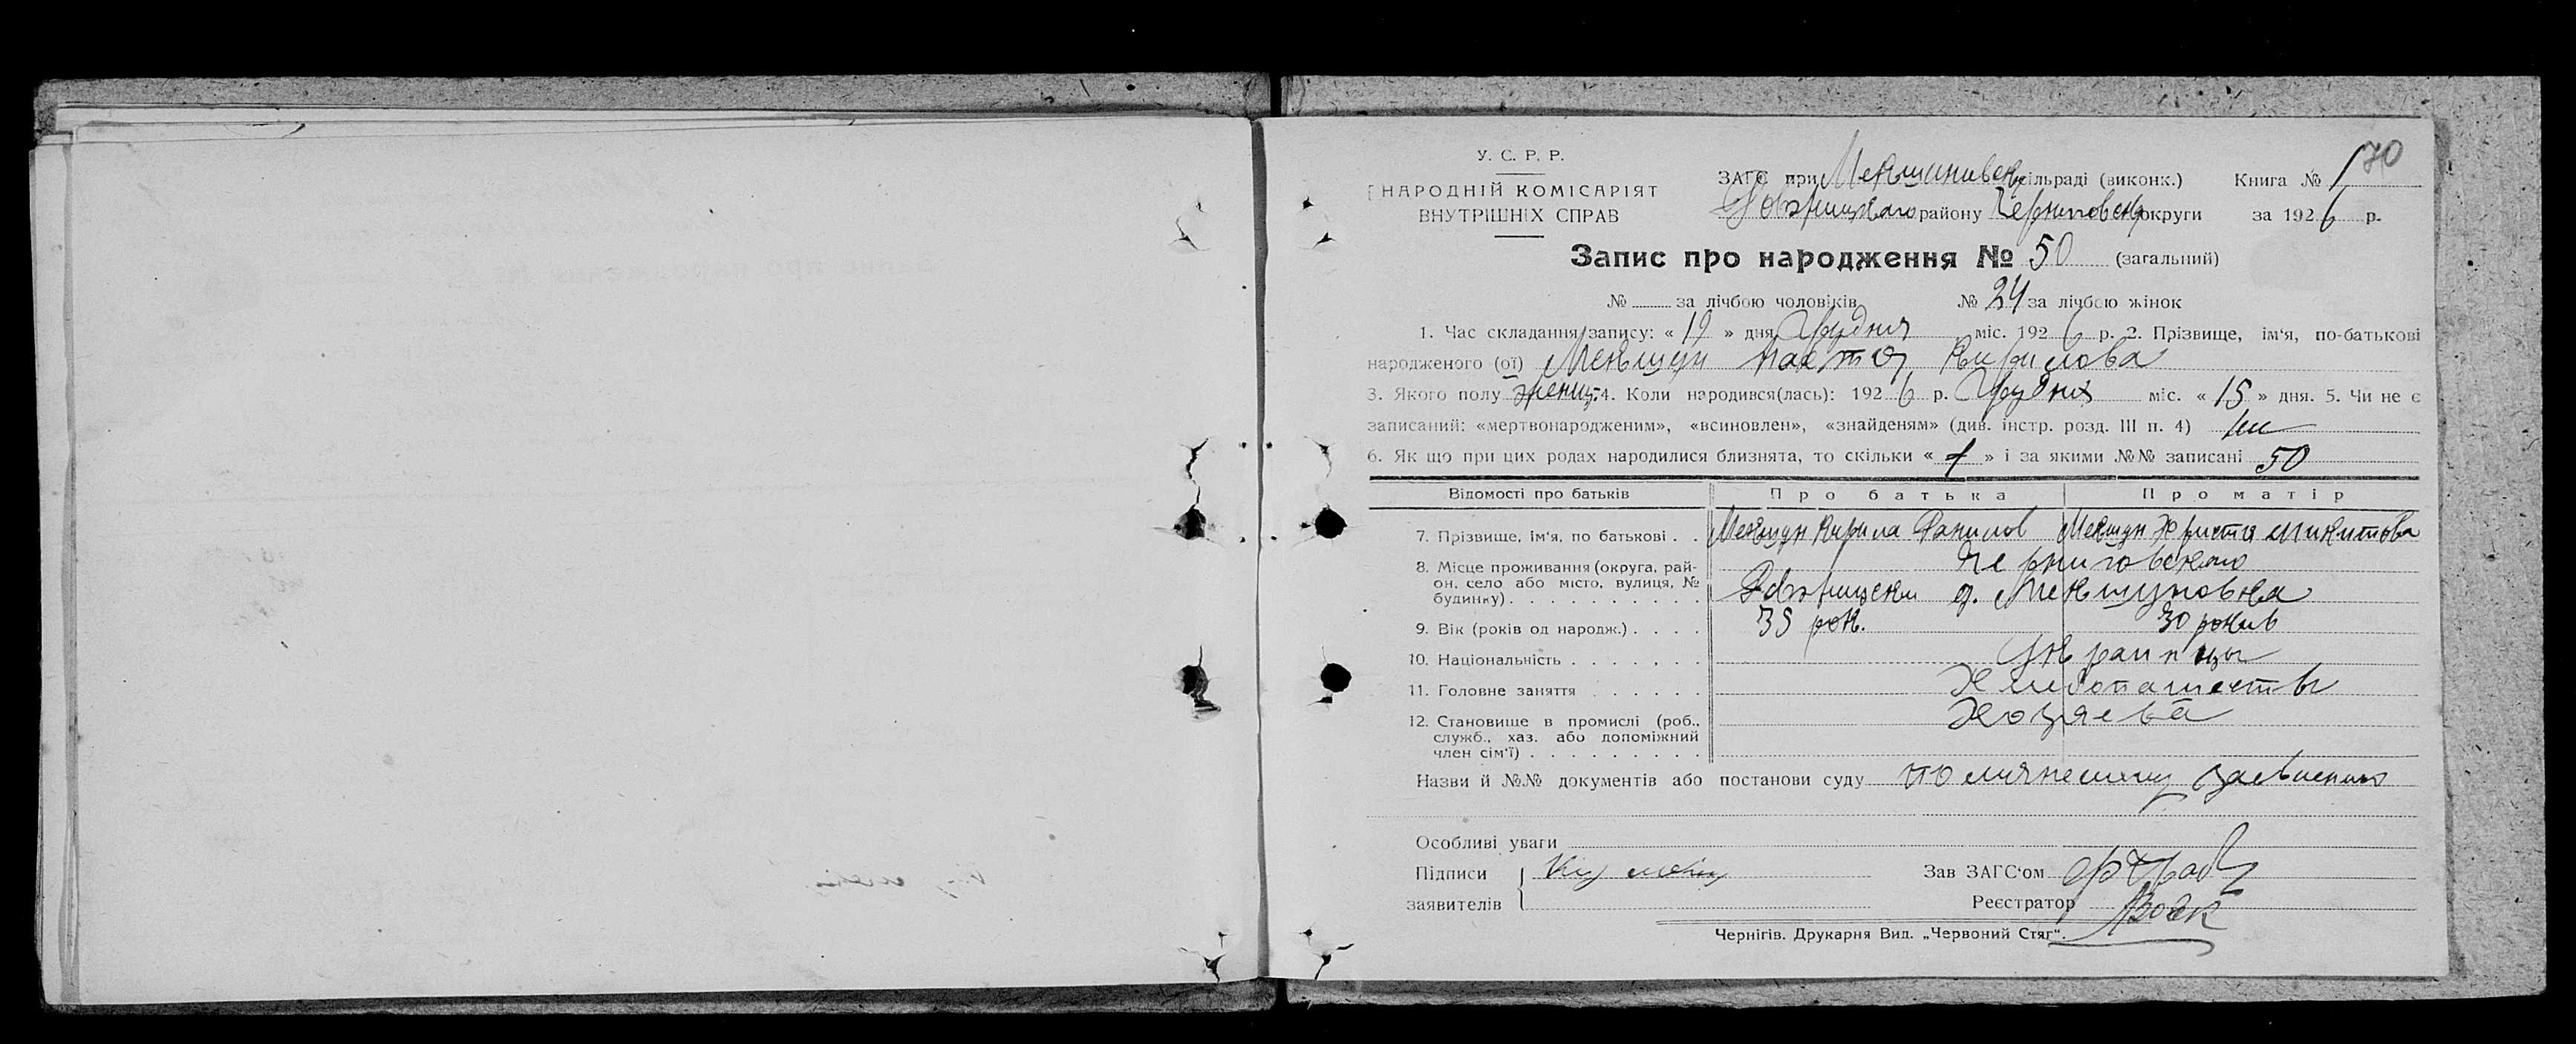 70
У. С. Р. Р.
НАРОДНІЙ КОМІСАРІЯТ
ВНУТРІШНІХ СПРАВ
ЗАГС при сільраді (виконк.) Книга № 1
району Черниговськ округи за 1926 р.
Запис про народження № 50 (загальний)
№ за лічбою чоловіків № 24 за лічбою жінок
1. Час складання запису: « 19 » дня Грудня міс. 1926 р. 2. Прізвище, ім'я, по-батькові
народженого (ої) Меньшун Кирилова
3. Якого полу женщ. 4. Коли народився(лась): 1926 р. Грудня міс. « 15 » дня. 5. Чи не є
записаний: «мертвонародженим», «всиновлен», «знайденям» (див. інстр. розд. III п. 4) ни
6. Як що при цих родах народилися близнята, то скільки « 1 » і за якими №№ записані 50
Відомості про батьків Про батька Про матір
7. Прізвище, ім'я, по батькові . . Меньшун Кирила Данилов Меншун Христя Микитова
8. Місце проживання (округа, рай-
он, село або місто, вулиця, №
будинку) . . . . . . . . . .
Черниговського
д. Меншуновка
9. Вік (років од народж.) . . . . 35 рок. 30 рокив
10. Національність . . . . . . . Украинцы
11. Головне заняття . . . . . . Хлибопашеств
12. Становище в промислі (роб.,
служб., хаз. або допоміжний
член сім'ї) . . . . . . . . .
Хозяева
Назви й №№ документів або постанови суду по
Особливі уваги
Підписи
заявителів
Зав ЗАГС'ом
Реєстратор
Чернігів. Друкарня Вид. „Червоний Стяг“.